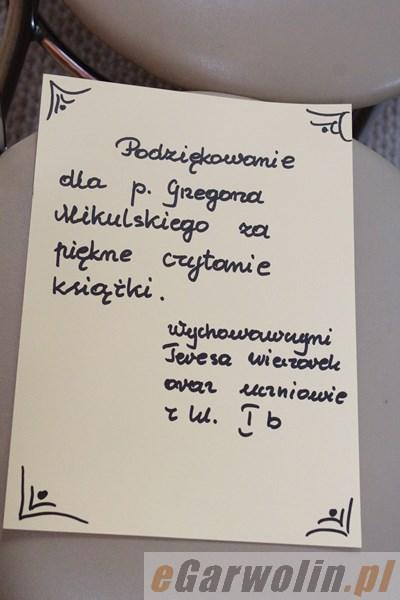 Podziękowanie
dla p. Grzegorza
Mikulskiego za
piękne czytanie
książki.
Wychowawczyni
Teresa Wieczorek
oraz uczniowie
z kl. I b
eGarwolin.pl